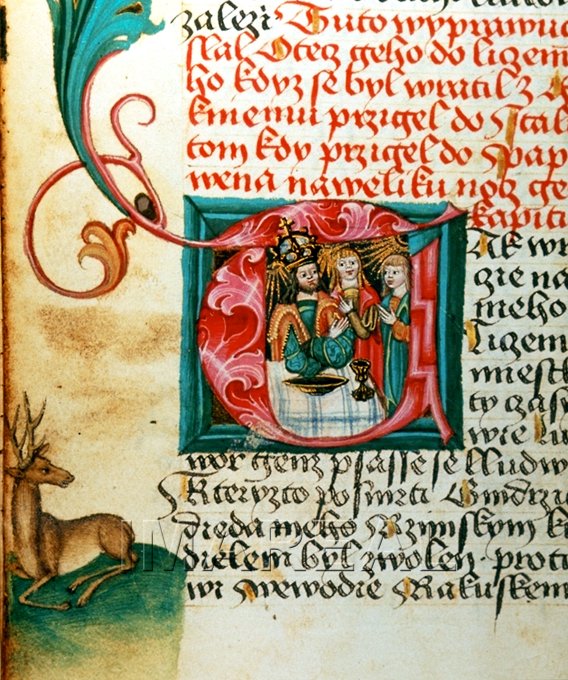 zalezi Tuto wyprawu
slal Otecz geho do ligem
ho kdyz se byl wratil z
kmemu przigel do Ital
tom kdy przigel do Pap
wena naweliku nocz ge
kapiti
AK wr
gie na
meho
ligem
miest
ty czas
wie lu
wor genz psasse se lludw
Kteryzto po smrti Gindrzi
dieda meho Rzimskym k
drzelem byl zwolen proti
wi Wewodie Rakuskem